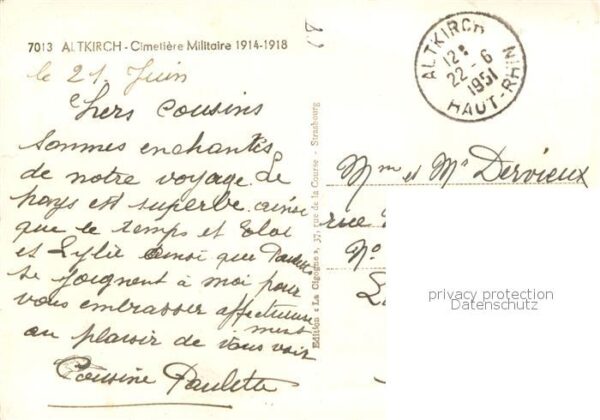 7013 ALTKIRCH - Cimetière Militaire 1914-1918
le 21 Juin
Chers Cousins
sommes enchantés
de notre voyage. Le
pays est superbe ainsi
que le temps et
et Sylie ainsi que Paulette
se joignent à moi pour
vous embrasser affectueuse
ment
au plaisir de vous voir
Cousine Paulette
Edition « La Cigogne », 37, rue de la Course - Strasbourg
ALTKIRCH
12
22-6
1951
HAUT-RHIN
Mme et Mr Dervieux
rue
No
privacy protection
Datenschutz